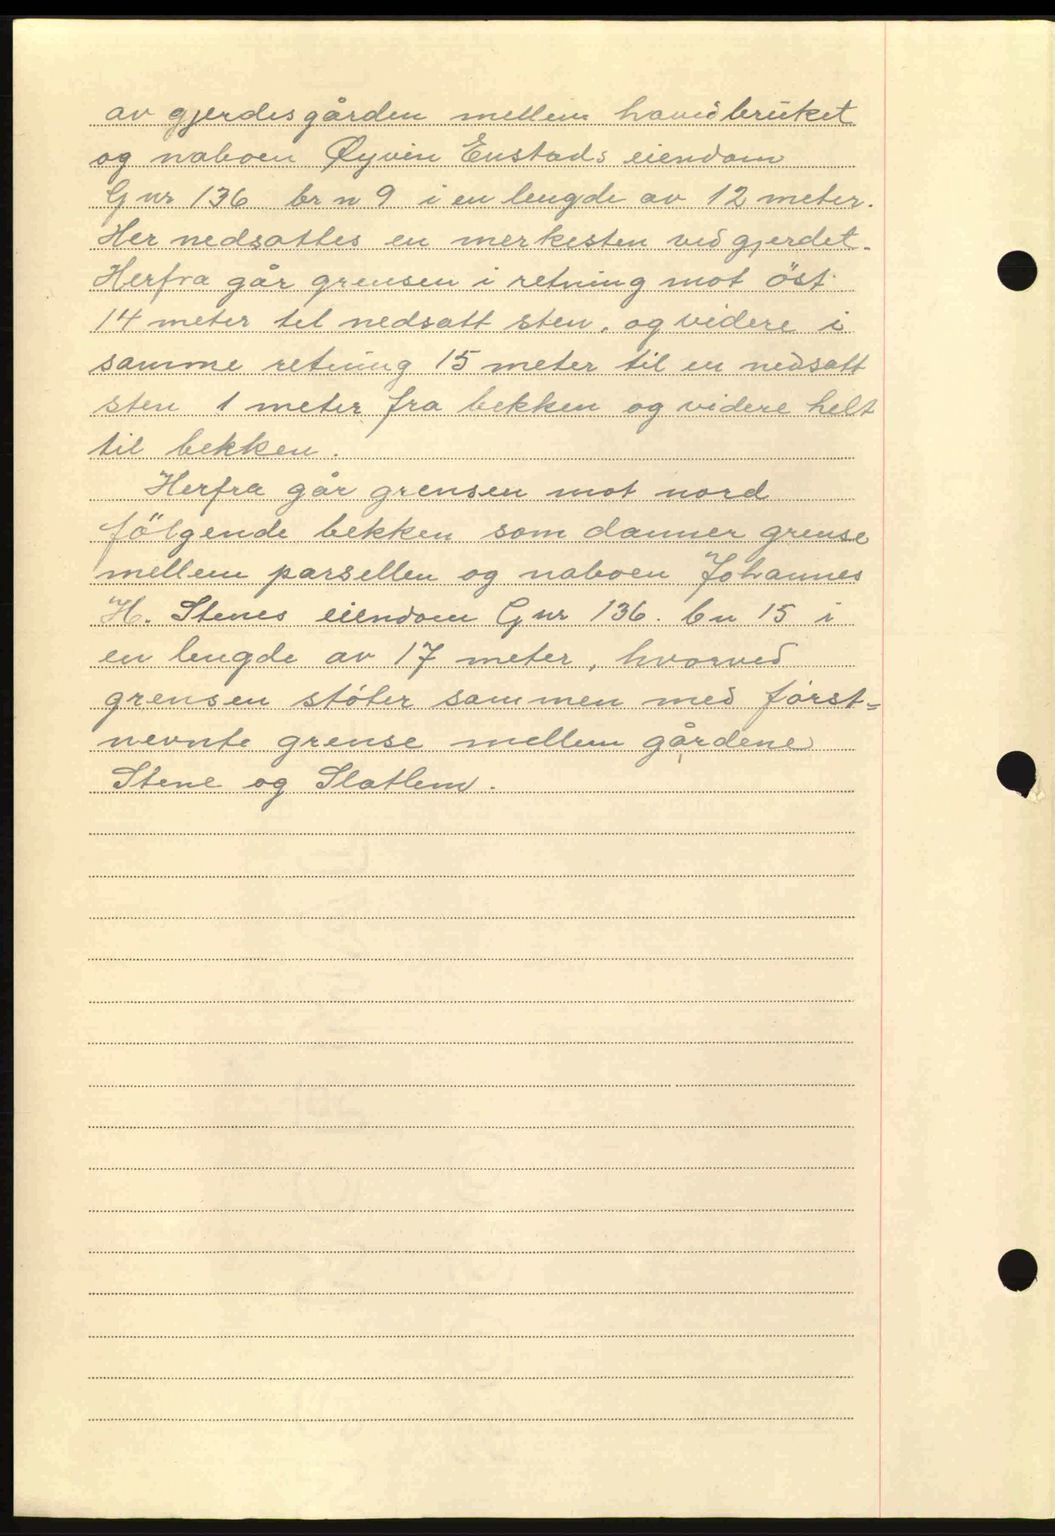 av gjerdesgården mellem hovedbruket
og naboen Øyvin Enstads eiendom
Gnr 136 br n 9 i en lengde av 12 meter.
Her nedsattes en merkesten ved gjerdet.
Herfra går grensen i retning mot öst
14 meter til nedsatt sten, og videre i
samme retning 15 meter til en nedsatt
sten 1 meter fra bekken og videre helt
til bekken.
Herfra går grensen mot nord
fölgende bekken som danner grense
mellem parsellen og naboen Johannes
H. Stenes eiendom Gnr 136. bn 15 i
en lengde av 17 meter, hvorved
grensen støter sammen med først=
nevnte grense mellem gårdene
Stene og Slatlem.